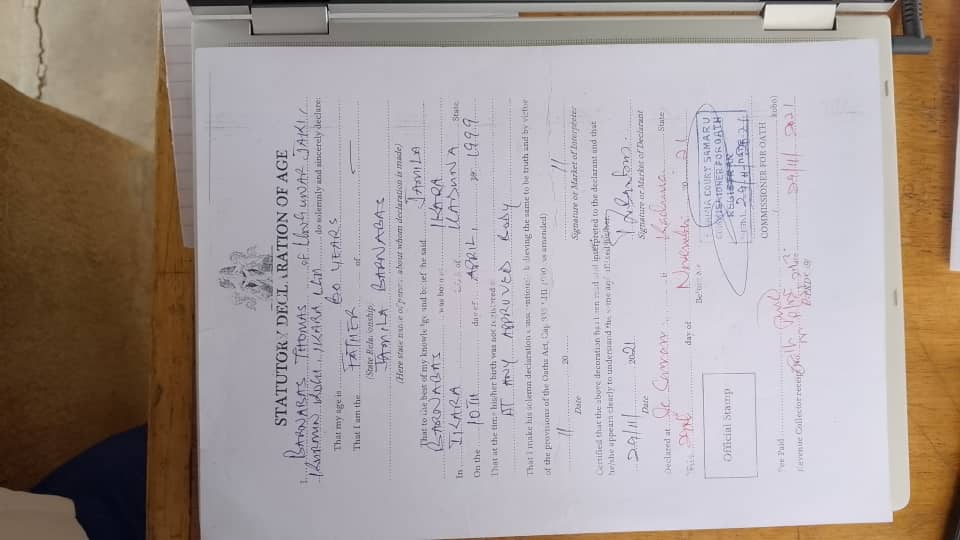 STATUTORY DECLARATION OF AGE
I, BARNABAS THOMAS of UNGUWAR JAKI
KURMIN KOGI, IKARA LGA do solemnly and sincerely declare:
That my age is 60 YEARS
That I am the FATHER of
(State Relationship)
JAMILA BARNABAS
(Here state name of person about whom declaration is made)
That to the best of my knowledge and belief he said JAMILA
BARNABAS was born at IKARA
In IKARA LGA of KADUNA State
On the 10TH day of APRIL, 1999
That at the time his/her birth was not registered
AT ANY APPROVED BODY
That I make his solemn declaration conscientiously believing the same to be truth and by victor
of the provisions of the Oaths Act, Cap 333 LFN 1990 (as amended)
11 20 11
Date Signature or Market of Interpreter
Certified that the above decoration has been read and interpreted to the declarant and that
he/she appears clearly to understand the same and affixed his/her
29/11/ 2021
Date Signature or Market of Declarant
Declared at Kaduna State
This day of November 20 21
Before me
Official Stamp
SHARIA COURT SAMARU
COMMISSIONER FOR OATH
REGISTRAR
29/11/2021
COMMISSIONER FOR OATH
Fee Paid kobo)
Revenue Collector receipt 29/11/2021